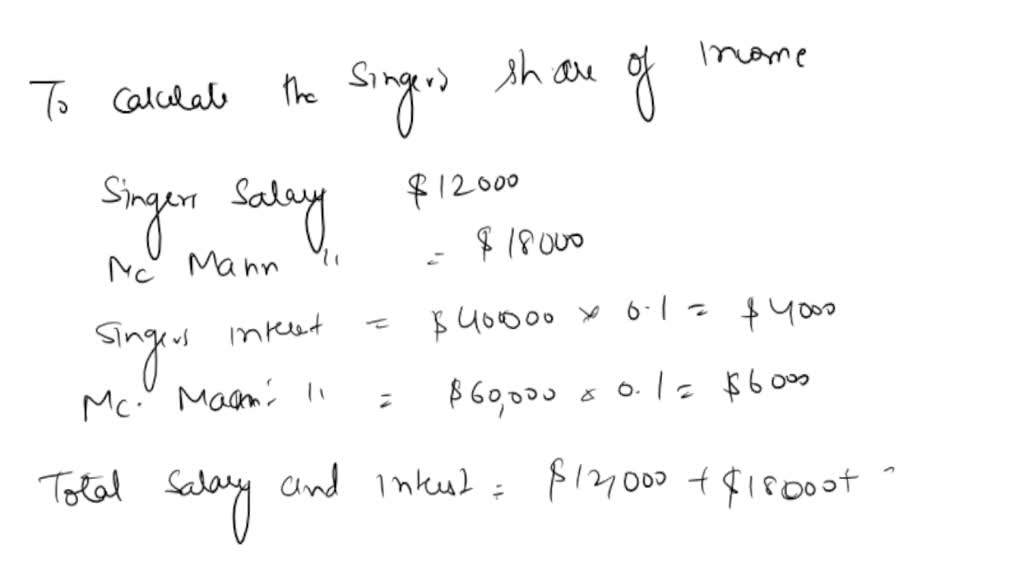 To calculate the Singers share of Income
Singers Salary $12000
Mc Mann " = $18000
Singers interest = $40000 x 0.1 = $4000
Mc. Mann " = $60,000 x 0.1 = $6000
Total Salary and interest = $12,000 + $18000 +